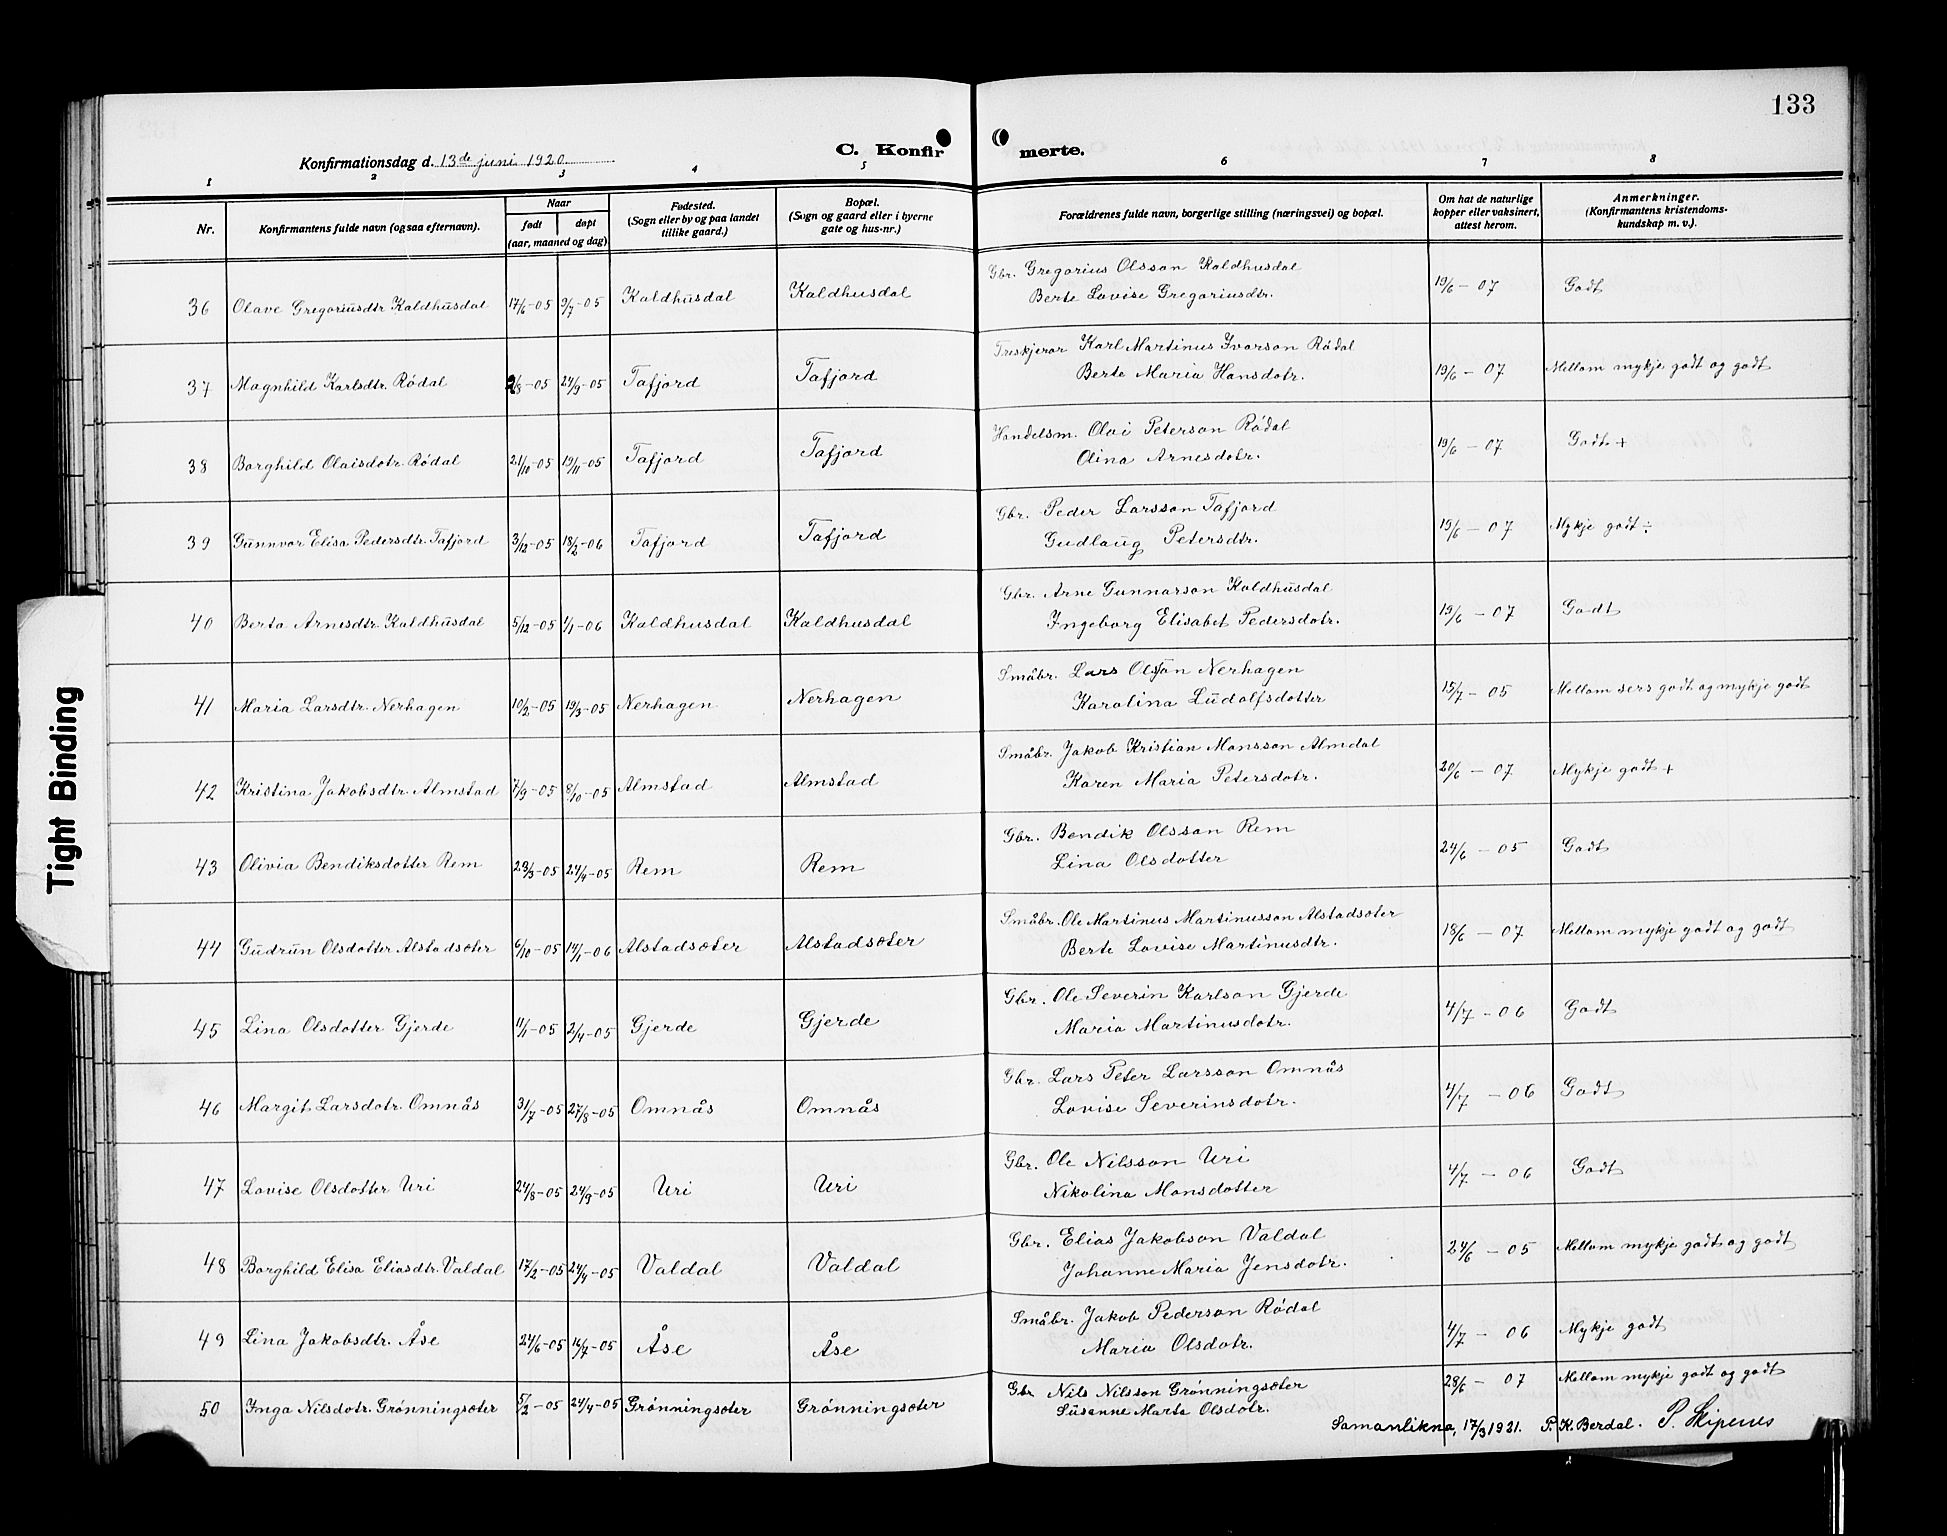 133
C. Konfirmerte.
Konfirmationsdag d. 13de juni 1920
1 2 3 4 5 6 7 8
Nr.
Konfirmantens fulde navn (og saa efternavn).
Naar
født døpt
(aar, maaned og dag)
Fødested.
(Sogn eller by og paa landet
tillike gaard.)
Bopæl.
(Sogn og gaard eller i byerne
gate og hus-nr.)
Forældrenes fulde navn, borgerlige stilling (næringsvei) og bopæl.
Om hat de naturlige
kopper eller vaksinert,
attest herom.
Anmerkninger.
(Konfirmantens kristendoms-
kundskap m. v.).
36 Olave Gregoriusdtr Kaldhusdal 17/6-05 9/7-05 Kaldhusdal Kaldhusdal Gbr. Gregorius Olsson Kaldhusdal 19/6-07 Godt
Berte Lovise Gregoriusdtr.
37 Magnhild Karlsdtr. Rödal 2/8-05 24/9-05 Tafjord Tafjord Treskjerar Karl Martinus Ivarson Rödal 19/6-07 Mellom mykje godt og godt
Berte Maria Hansdotr.
38 Borghild Olaisdotr. Rödal 21/10-05 19/11-05 Tafjord Tafjord Handelsm. Olai Peterson Rödal 19/6-07 Godt +
Olina Arnesdotr.
39 Gunnvor Elisa Pedersdtr. Tafjord 3/12-05 18/2-06 Tafjord Tafjord Gbr. Peder Larsson Tafjord 19/6-07 Mykje godt ÷
Gudlaug Petersdtr.
40 Berta Arnesdtr. Kaldhusdal 5/12-05 1/1-06 Kaldhusdal Kaldhusdal Gbr. Arne Gunnarson Kaldhusdal 19/6-07 Godt
Ingeborg Elisabet Pedersdotr.
41 Maria Larsdtr. Nerhagen 10/2-05 19/3-05 Nerhagen Nerhagen Småbr. Lars Olsson Nerhagen 15/7-05 Mellom sers godt og mykje godt
Karolina Ludolfsdotter
42 Kristina Jakobsdtr. Almstad 7/9-05 8/10-05 Almstad Almstad Småbr. Jakob Kristian Monsson Almdal 20/6-07 Mykje godt +
Karen Maria Petersdotr.
43 Olivia Bendiksdotter Rem 29/3-05 24/4-05 Rem Rem Gbr. Bendik Olsson Rem 24/6-05 Godt
Lina Olsdotter
44 Gudrun Olsdotter Alstadsæter 6/10-05 14/1-06 Alstadsæter Alstadsæter Småbr. Ole Martinus Martinusson Alstadsæter 18/6-07 Mellom mykje godt og godt
Berte Lovise Martinusdtr.
45 Lina Olsdotter Gjerde 11/1-05 2/4-05 Gjerde Gjerde Gbr. Ole Severin Karlson Gjerde 4/7-06 Godt
Maria Martinusdotr.
46 Margit Larsdotr. Omnås 31/7-05 27/8-05 Omnås Omnås Gbr. Lars Peter Larsson Omnås 4/7-06 Godt
Lovise Severinsdotr.
47 Lovise Olsdotter Uri 24/8-05 24/9-05 Uri Uri Gbr. Ole Nilsson Uri 4/7-06 Godt
Nikolina Monsdotter
48 Borghild Elisa Eliasdtr. Valdal 17/2-05 24/4-05 Valdal Valdal Gbr. Elias Jakobson Valdal 24/6-05 Mellom mykje godt og godt
Johanne Maria Jensdotr.
49 Lina Jakobsdtr. Åse 24/6-05 16/7-05 Åse Åse Småbr. Jakob Pederson Rödal 4/7-06 Mykje godt
Maria Olsdotr.
50 Inga Nilsdotr. Grönningsæter 5/2-05 24/4-05 Grönningsæter Grönningsæter Gbr. Nils Nilsson Grönningsæter 28/6-07 Mellom mykje godt og godt
Susanne Marta Olsdotr.
Samanlikna, 17/3 1921. P. K. Berdal. P. Skipenes
Tight Binding